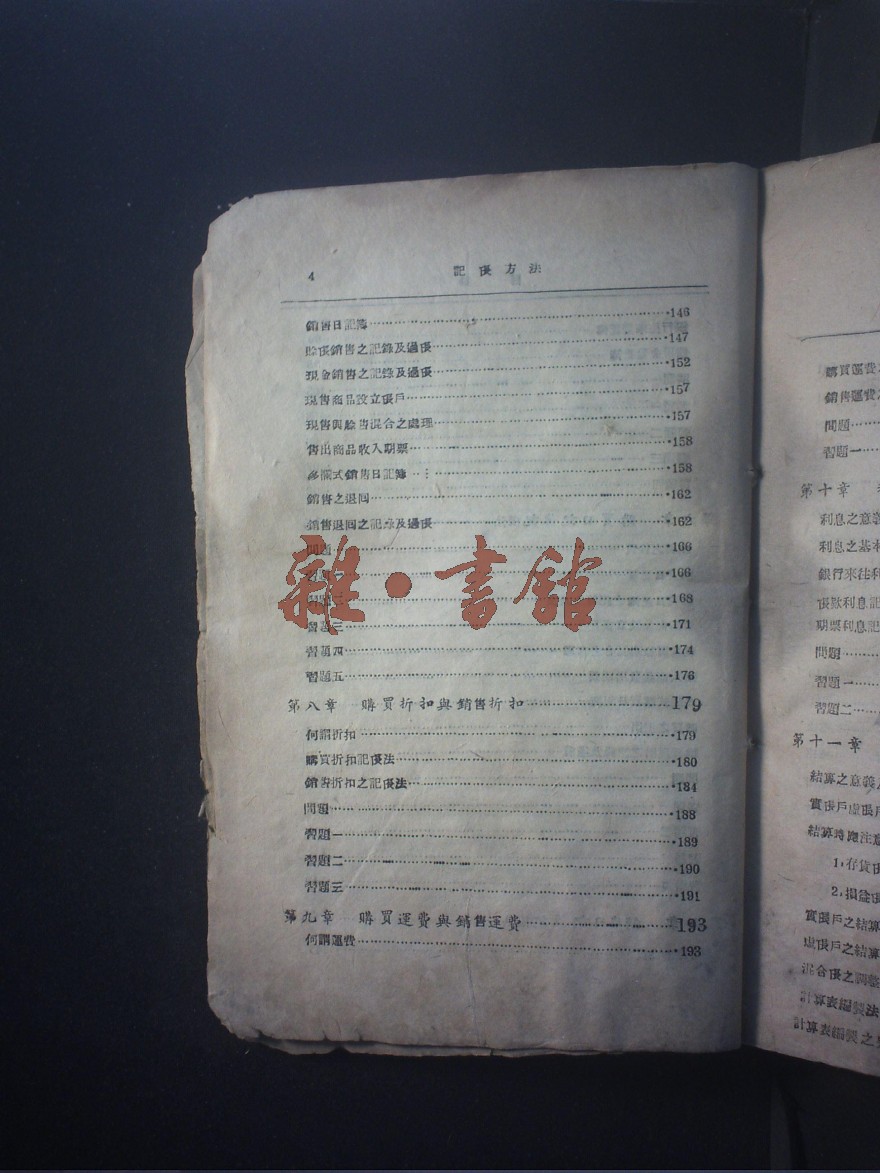 4 記賬方法
銷售日記簿 146
賒賬銷售之記錄及過賬 147
現金銷售之記錄及過賬 152
現售商品設立賬戶 157
現售與賒售混合之處理 157
售出商品收入期票 158
多欄式銷售日記簿 158
銷售之退回 162
銷售退回之記錄及過賬 162
問題 166
習題一 166
習題二 168
習題三 171
習題四 174
習題五 176
第八章 購買折扣與銷售折扣 179
何謂折扣 179
購買折扣記賬法 180
銷售折扣之記賬法 184
問題 188
習題一 189
習題二 190
習題三 191
第九章 購買運費與銷售運費 193
何謂運費 193
雜·書館
購買運費
銷售運費
問題
習題一
第十章
利息之意義
利息之基本
銀行來往利
賬款利息記
期票利息記
問題
習題一
習題二
第十一章
結算之意義
實賬戶虛賬戶
結算時應注意
1.存貨
2.損益
實賬戶之結算
虛賬戶之結算
混合賬之調整
計算表編製法
計算表編製之